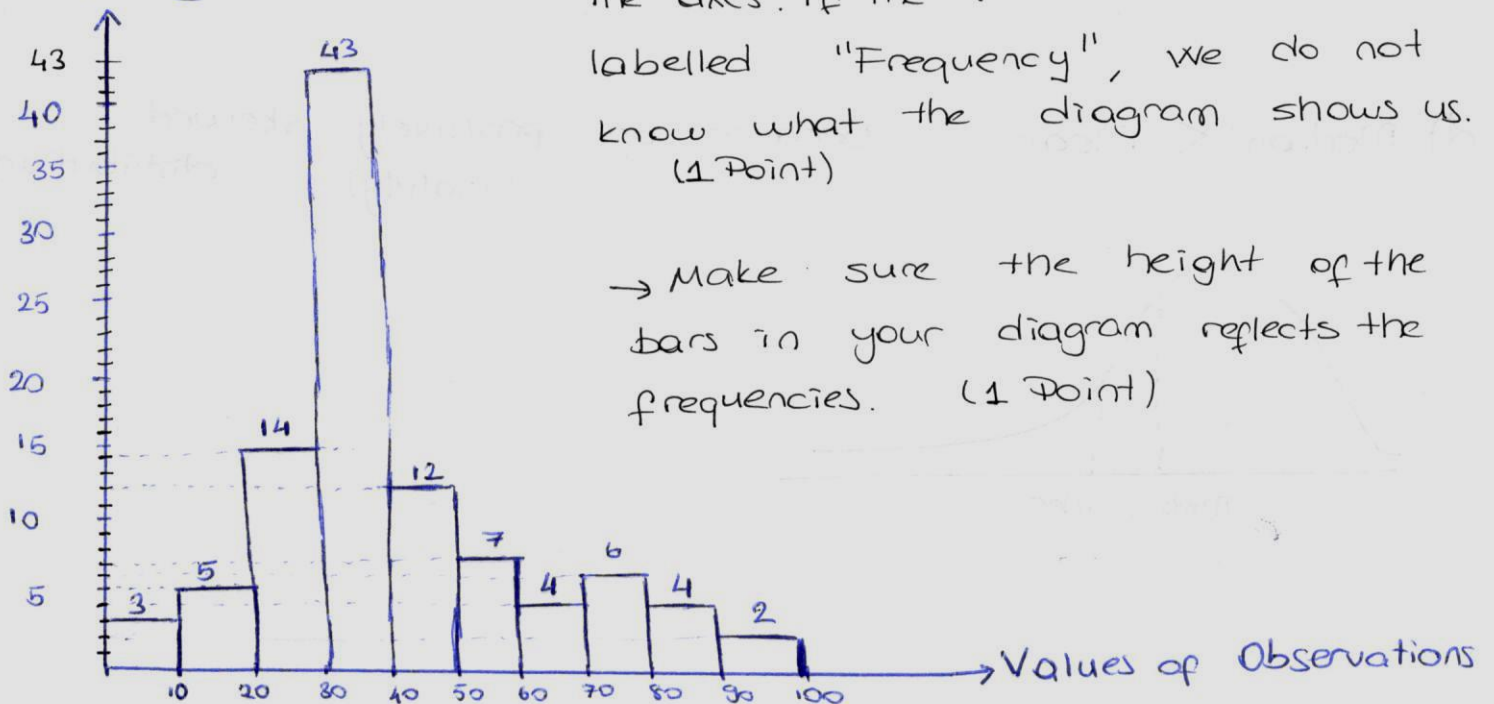 labelled "Frequency", we do not
know what the diagram shows us.
(1 Point)
→ Make sure the height of the
bars in your diagram reflects the
frequencies. (1 Point)
43
40
35
30
25
20
15
10
5
3
5
14
43
12
7
4
6
4
2
10 20 30 40 50 60 70 80 90 100
Values of Observations